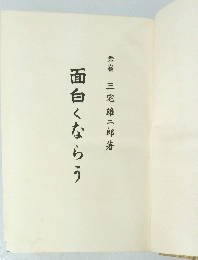 三宅雄二郎著
面白くならう